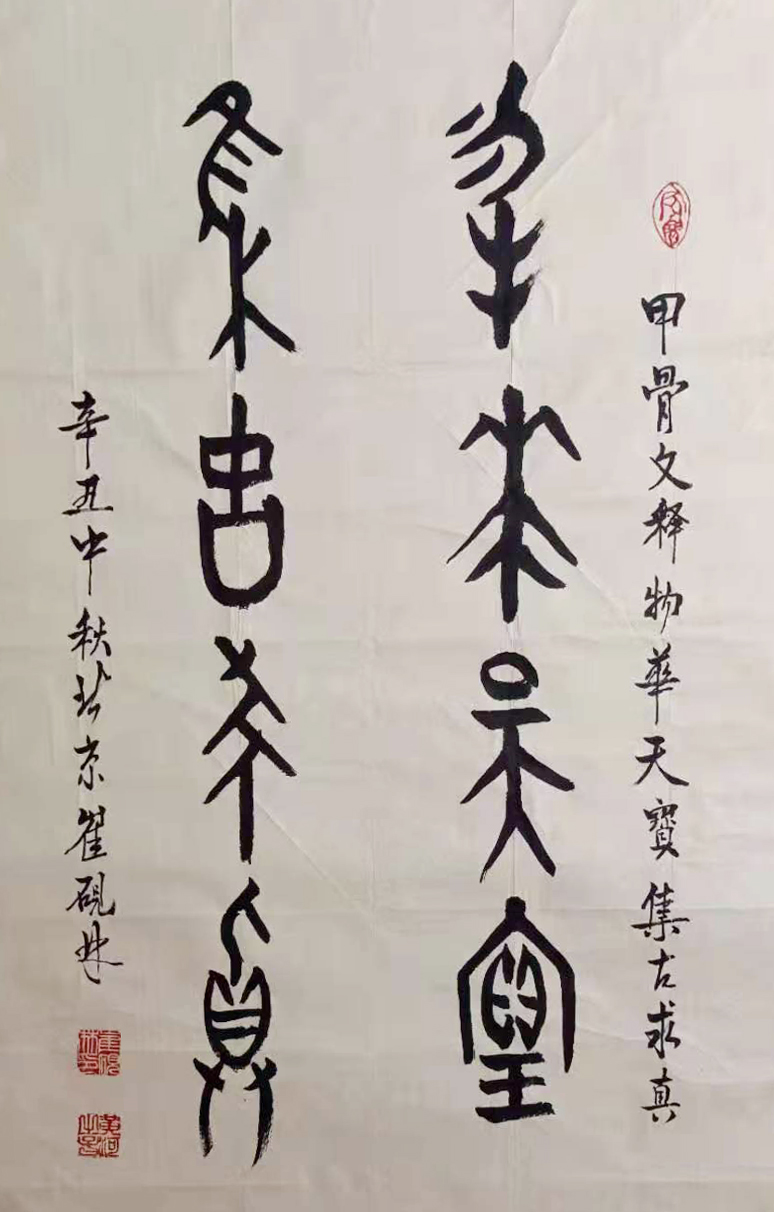 甲骨文释物華天寶集古求真
物華天寶
集古求真
辛丑中秋於京崔硯林